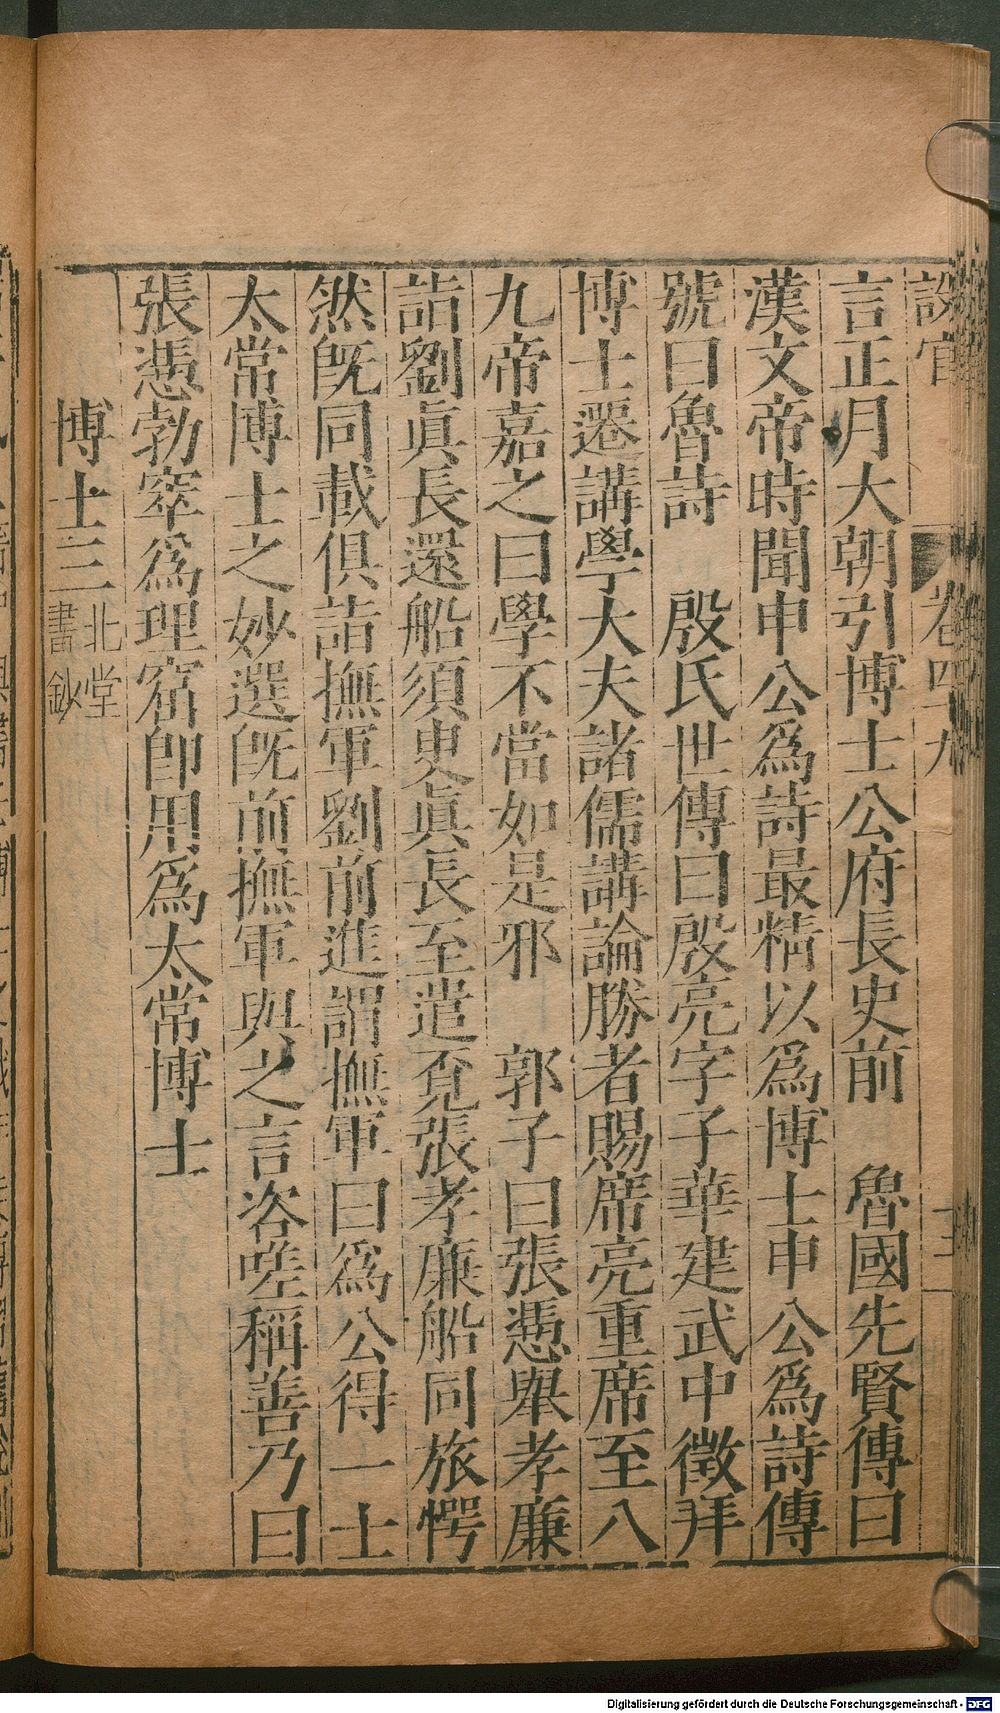 設官
卷四十九
言正月大朝引博士公府長史前　魯國先賢傳曰
漢文帝時聞申公爲詩最精以爲博士申公爲詩傳
號曰魯詩　殷氏世傳曰殷亮字子華建武中徵拜
博士遷講學大夫諸儒講論勝者賜席亮重席至八
九帝嘉之曰學不當如是邪　郭子曰張憑舉孝廉
詣劉眞長還船須臾眞長至遣覓張孝廉船同旅愕
然旣同載俱詣撫軍劉前進謂撫軍曰爲公得一士
太常博士之妙選旣前撫軍與之言咨嗟稱善乃曰
張憑勃窣爲理窟卽用爲太常博士
博士三北堂
書鈔
Digitalisierung gefördert durch die Deutsche Forschungsgemeinschaft - DFG